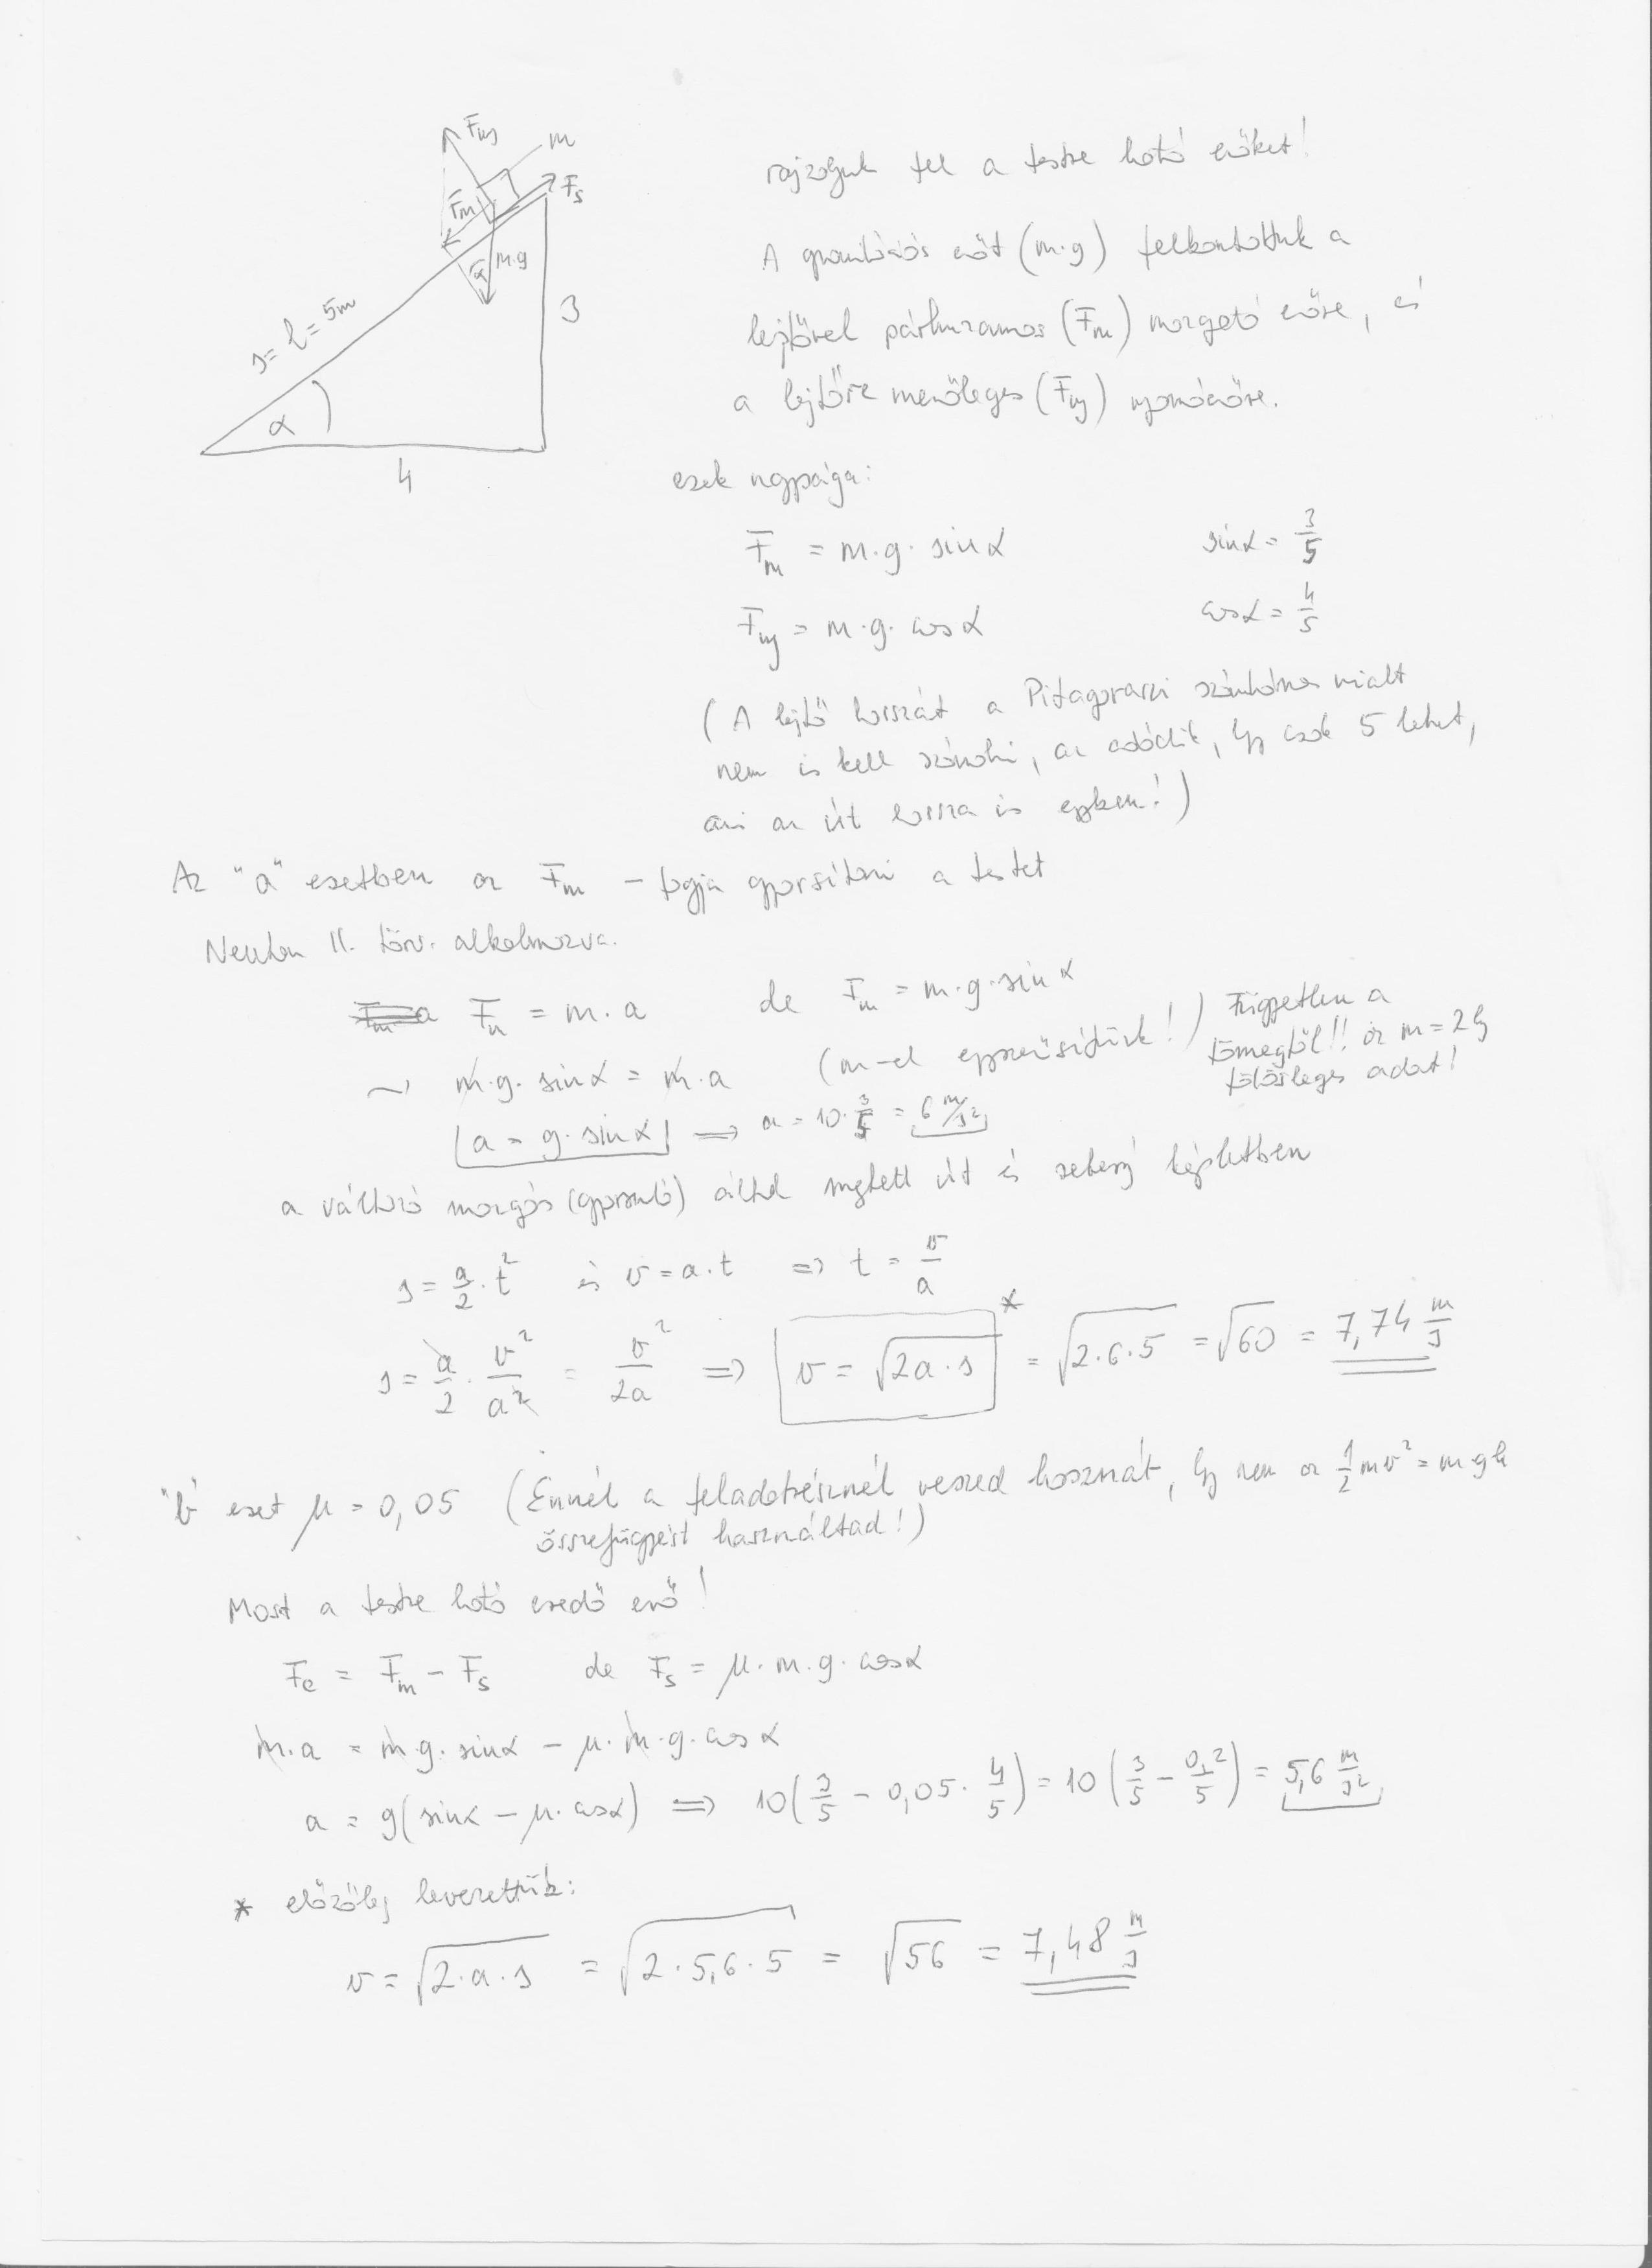 F_ny
m
F_m
F_s
m·g
s = l = 5m
3
α
4
rajzoljuk fel a testre ható erőket!
A gravitációs erőt (m·g) felbontottuk a
lejtővel párhuzamos (F_m) mozgató erőre, és
a lejtőre merőleges (F_ny) nyomóerőre.
ezek nagysága:
F_m = m·g·sinα sinα = 3/5
F_ny = m·g·cosα cosα = 4/5
(A lejtő hosszát a Pitagoraszi számhármas miatt
nem is kell számolni, az adódik, hogy csak 5 lehet,
ami az út hossza is egyben!)
Az "a" esetben az F_m – fogja gyorsítani a testet
Newton II. törv. alkalmazva.
F_m = m·a de F_m = m·g·sinα
→ m·g·sinα = m·a (m-el egyszerűsítünk!) Független a
tömegtől!! az m = 2kg
fölösleges adat!
a = g·sinα ⇒ a = 10·3/5 = 6 m/s²
a változó mozgás (gyorsuló) által megtett út és sebesség képletben
s = a/2·t² és v = a·t ⇒ t = v/a
s = a/2·v²/a² = v²/2a ⇒ v = √(2a·s) * = √(2·6·5) = √60 = 7,74 m/s
"b" eset μ = 0,05 (Ennél a feladatrésznél veszed hasznát, hogy nem az 1/2mv² = mgh
összefüggést használtad!)
Most a testre ható eredő erő!
F_e = F_m – F_s de F_s = μ·m·g·cosα
m·a = m·g·sinα – μ·m·g·cosα
a = g(sinα – μ·cosα) ⇒ 10(3/5 – 0,05·4/5) = 10(3/5 – 0,2/5) = 5,6 m/s²
* előzőleg levezettük:
v = √(2·a·s) = √(2·5,6·5) = √56 = 7,48 m/s